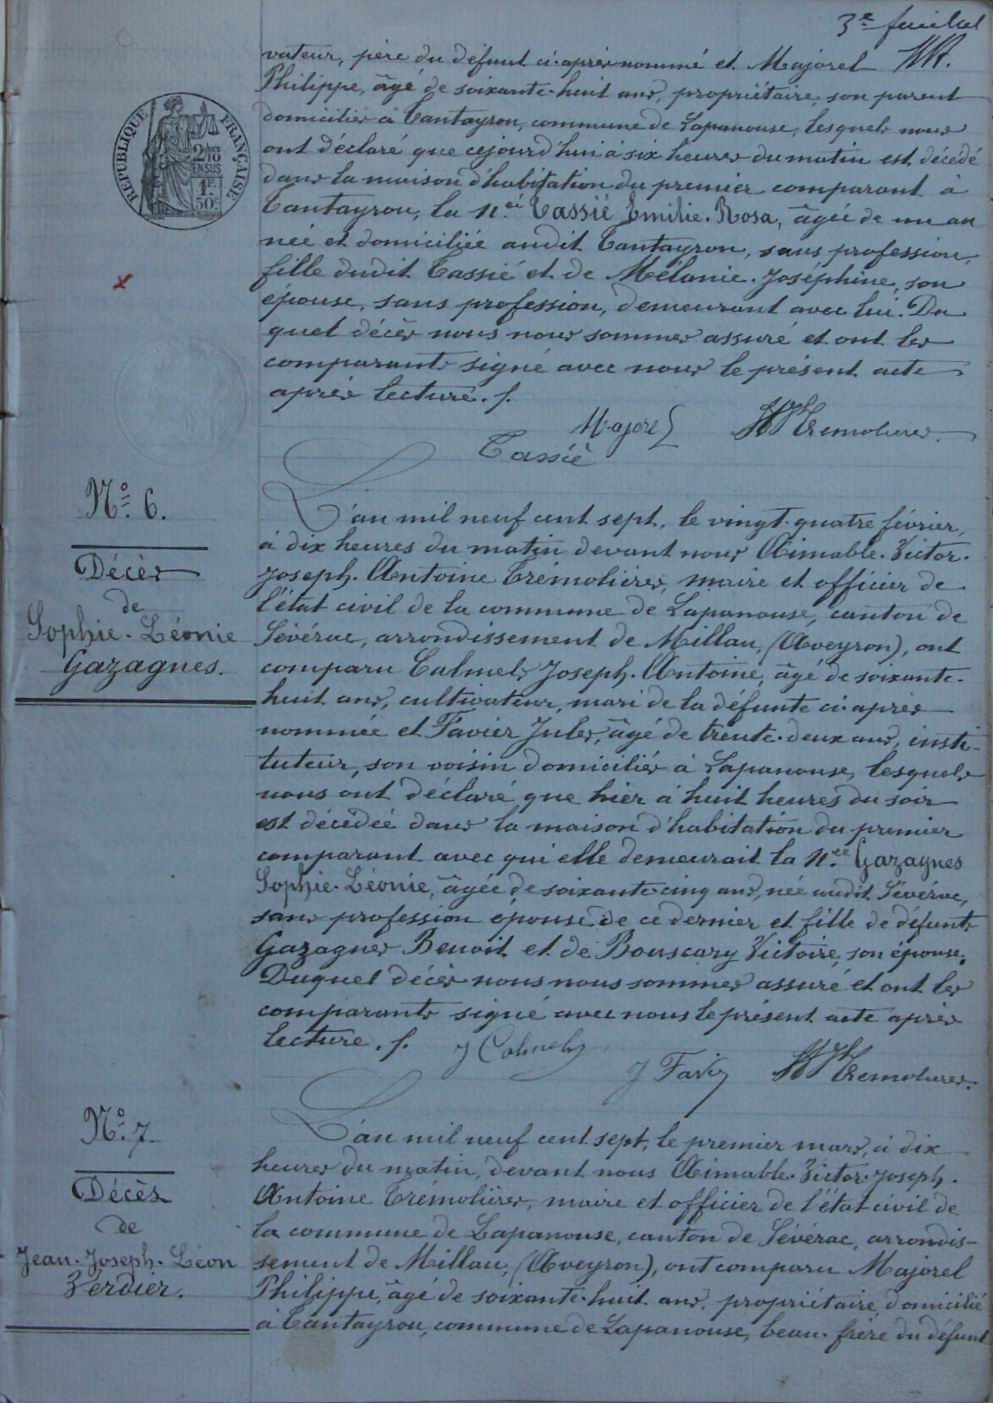 3e feuillet
vateur, père du défunt ci-après nommé et Majorel
Philippe, âgé de soixante-huit ans, propriétaire, son parent
domiciliés à Cantayrou, commune de Lapanouse, lesquels nous
ont déclaré que cejourd'hui à six heures du matin est décédé
dans la maison d'habitation du premier comparant à
Cantayrou, la n.ée Cassié Emilie-Rosa, âgée de un an
née et domiciliée audit Cantayrou, sans profession,
fille dudit Cassié et de Mélanie-Joséphine, son
épouse, sans profession, demeurant avec lui. Du
quel décès nous nous sommes assuré et ont les
comparants signé avec nous le présent acte
après lecture. /.
RÉPUBLIQUE FRANÇAISE
2/10
EN SUS
1F.
50c
Majorel Tremolieres
Cassié
No. 6.
Décès
de
Sophie-Léonie
Gazagnes.
L'an mil neuf cent sept, le vingt-quatre février,
à dix heures du matin devant nous Aimable-Victor-
Joseph-Antoine Trémolières, maire et officier de
l'état civil de la commune de Lapanouse, canton de
Sévérac, arrondissement de Millau, (Aveyron), ont
comparu Calmels Joseph-Antoine, âgé de soixante-
huit ans, cultivateur, mari de la défunte ci-après
nommée et Favier Jules, âgé de trente-deux ans, insti-
tuteur, son voisin domiciliés à Lapanouse, lesquels
nous ont déclaré que hier à huit heures du soir
est décédée dans la maison d'habitation du premier
comparant avec qui elle demeurait la n.ée Gazagnes
Sophie-Léonie, âgée de soixante-cinq ans, née audit Sévérac,
sans profession épouse de ce dernier et fille de défunts
Gazagnes Benoit et de Bouscary Victoire, son épouse.
Duquel décès nous nous sommes assuré et ont les
comparants signé avec nous le présent acte après
lecture. /. J Calmels
J Favier Tremolieres
No. 7.
Décès
de
Jean-Joseph-Léon
Verdier.
L'an mil neuf cent sept, le premier mars, à dix
heures du matin, devant nous Aimable-Victor-Joseph-
Antoine Trémolières, maire et officier de l'état civil de
la commune de Lapanouse, canton de Sévérac, arrondis-
sement de Millau, (Aveyron), ont comparu Majorel
Philippe, âgé de soixante-huit ans, propriétaire, domicilié
à Cantayrou, commune de Lapanouse, beau-frère du défunt